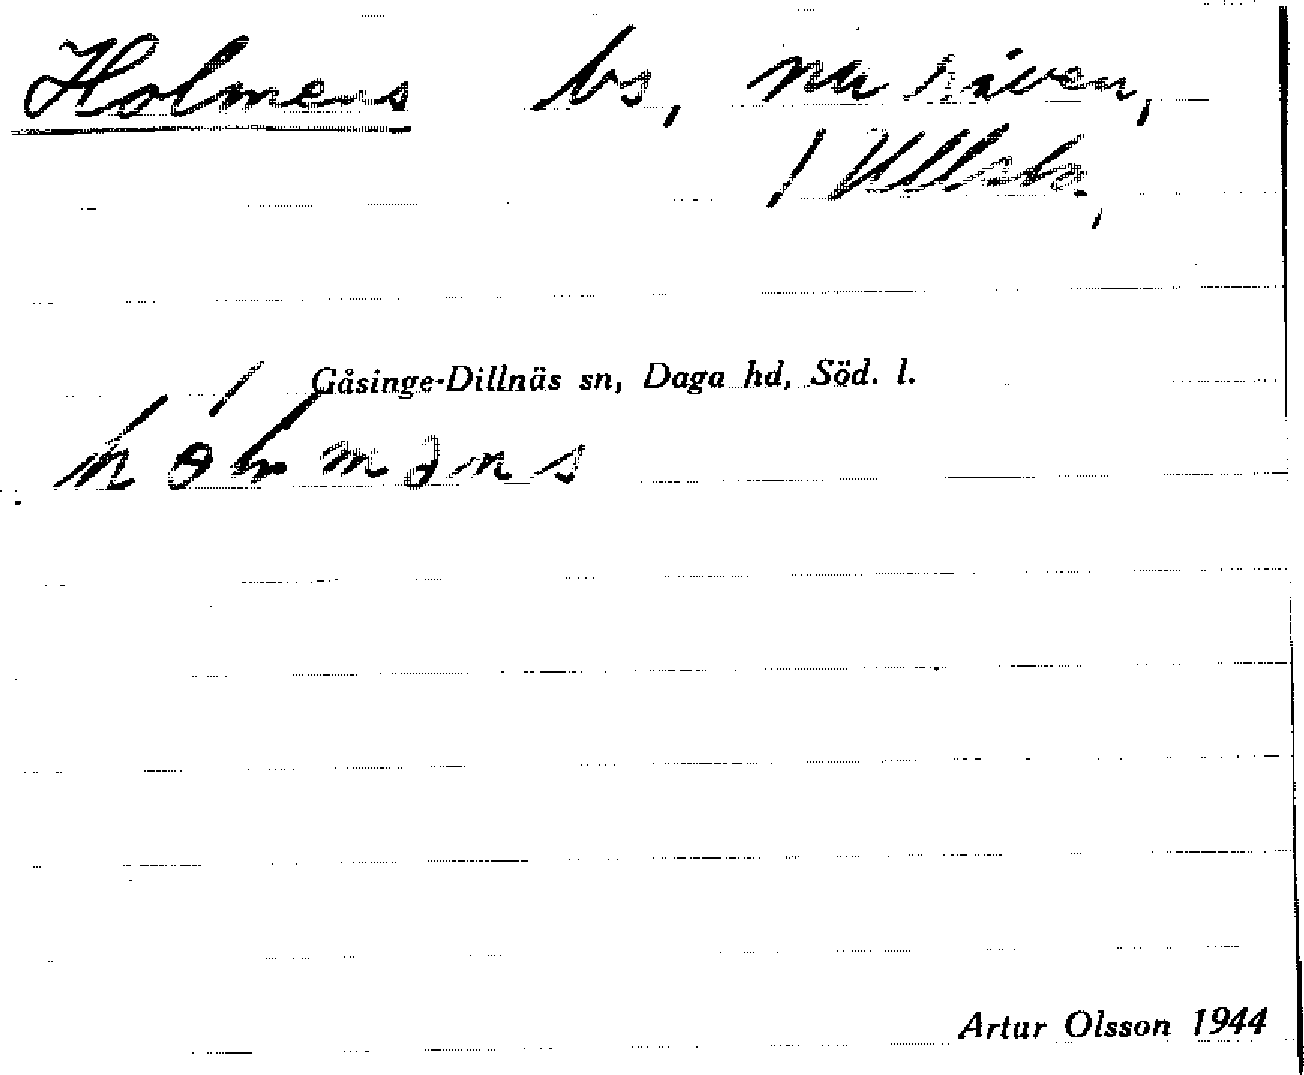 Holmens bs, nu även,
/ Ullsta,
Gåsinge-Dillnäs sn, Daga hd, Söd. l.
Artur Olsson 1944